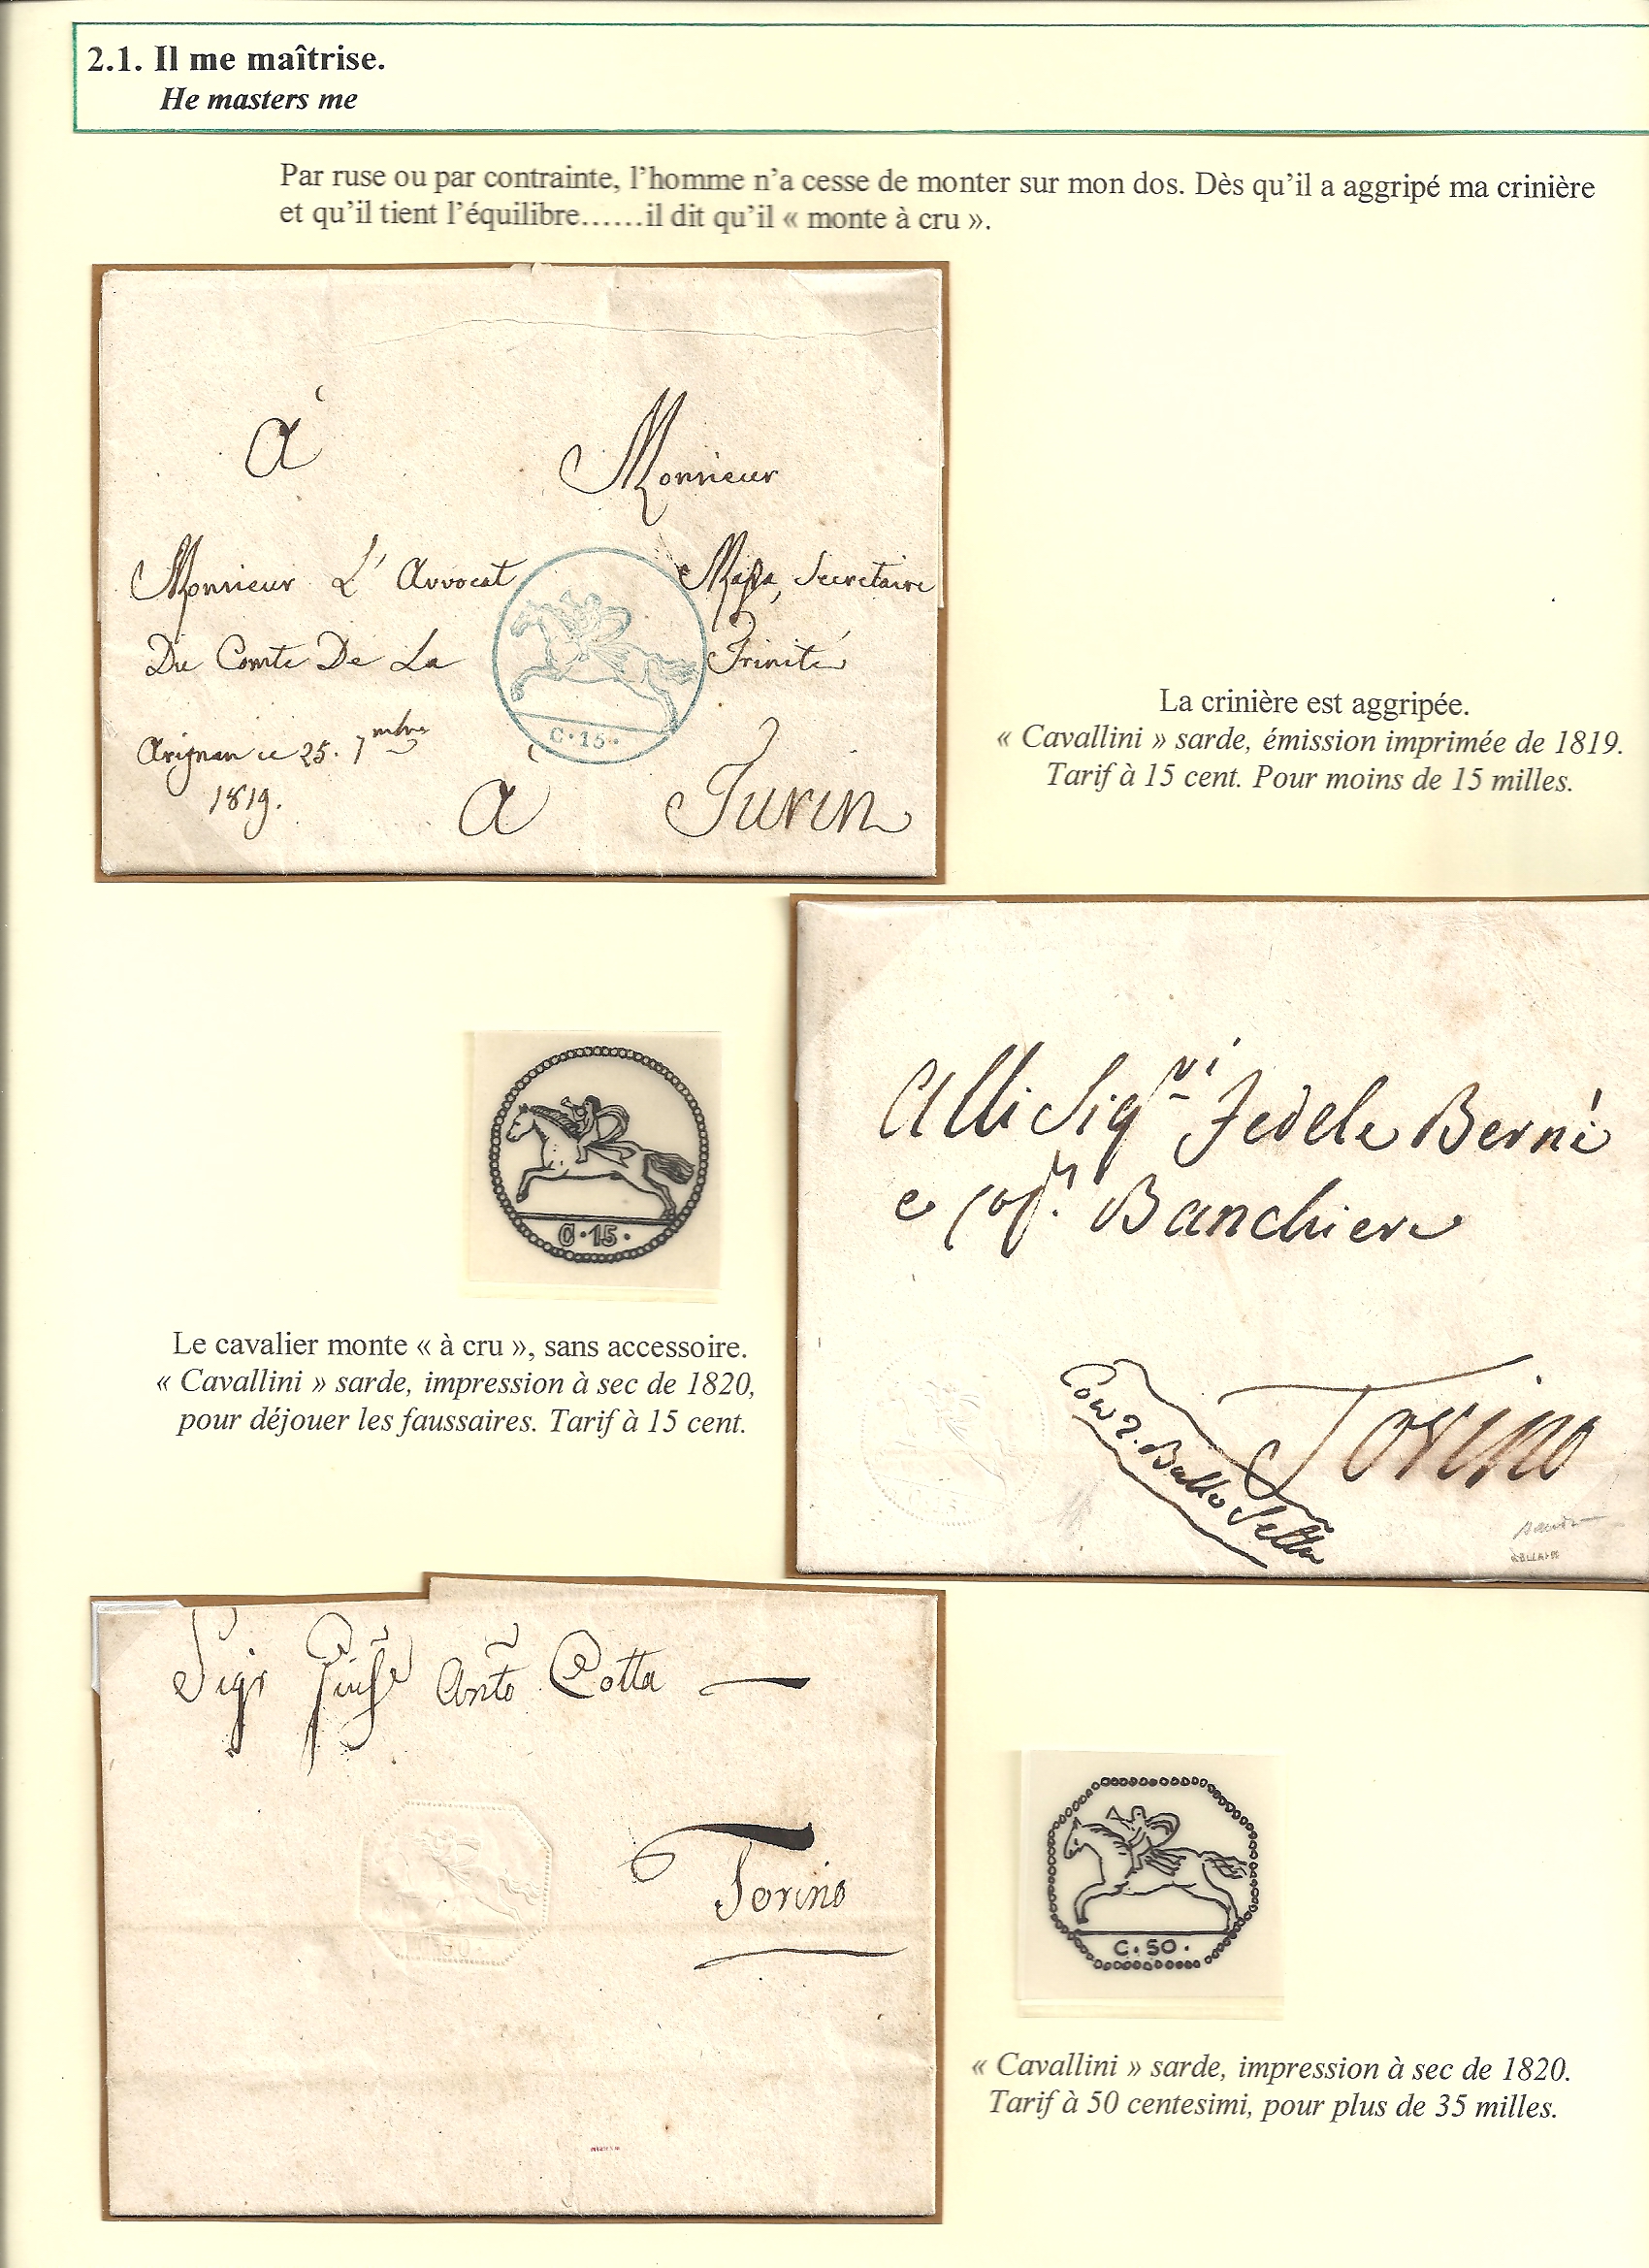 2.1. Il me maîtrise.
He masters me
Par ruse ou par contrainte, l’homme n’a cesse de monter sur mon dos. Dès qu’il a aggripé ma crinière
et qu’il tient l’équilibre……il dit qu’il « monte à cru ».
À Monsieur
Monsieur L' Avvocat Secretaire
Du Comte De La Trinité
ce 25. 7mbre
1819.
A Turin
C·15·
La crinière est aggripée.
« Cavallini » sarde, émission imprimée de 1819.
Tarif à 15 cent. Pour moins de 15 milles.
Alli Sigri Fedele Berni
e Banchiere
Torino
C·15·
Le cavalier monte « à cru », sans accessoire.
« Cavallini » sarde, impression à sec de 1820,
pour déjouer les faussaires. Tarif à 15 cent.
Sigr Anto Cotta
Torino
C.50.
« Cavallini » sarde, impression à sec de 1820.
Tarif à 50 centesimi, pour plus de 35 milles.